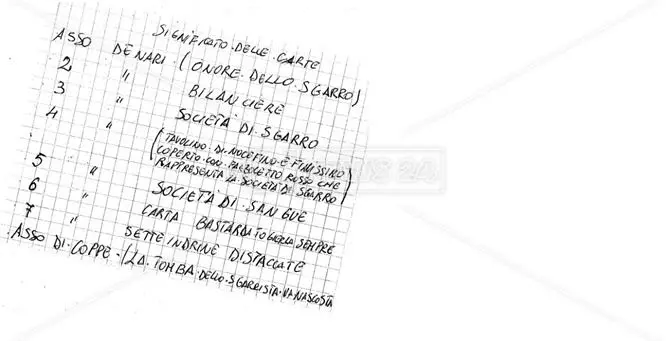 SIGNIFICATO DELLE CARTE
ASSO DENARI (ONORE DELLO SGARRO)
2 " BILANCIERE
3 " SOCIETÀ DI SGARRO
4 "
(TAVOLINO DI NOCE FINO E FINISSIMO
COPERTO CON FAZZOLETTO ROSSO CHE
RAPPRESENTA LA SOCIETÀ DI SGARRO)
5 " SOCIETÀ DI SANGUE
6 " CARTA BASTARDA TOGLIERLA SEMPRE
7 " SETTE INDRINE DISTACCATE
ASSO DI COPPE (LA TOMBA DELLO SGARRISTA VA NASCOSTA